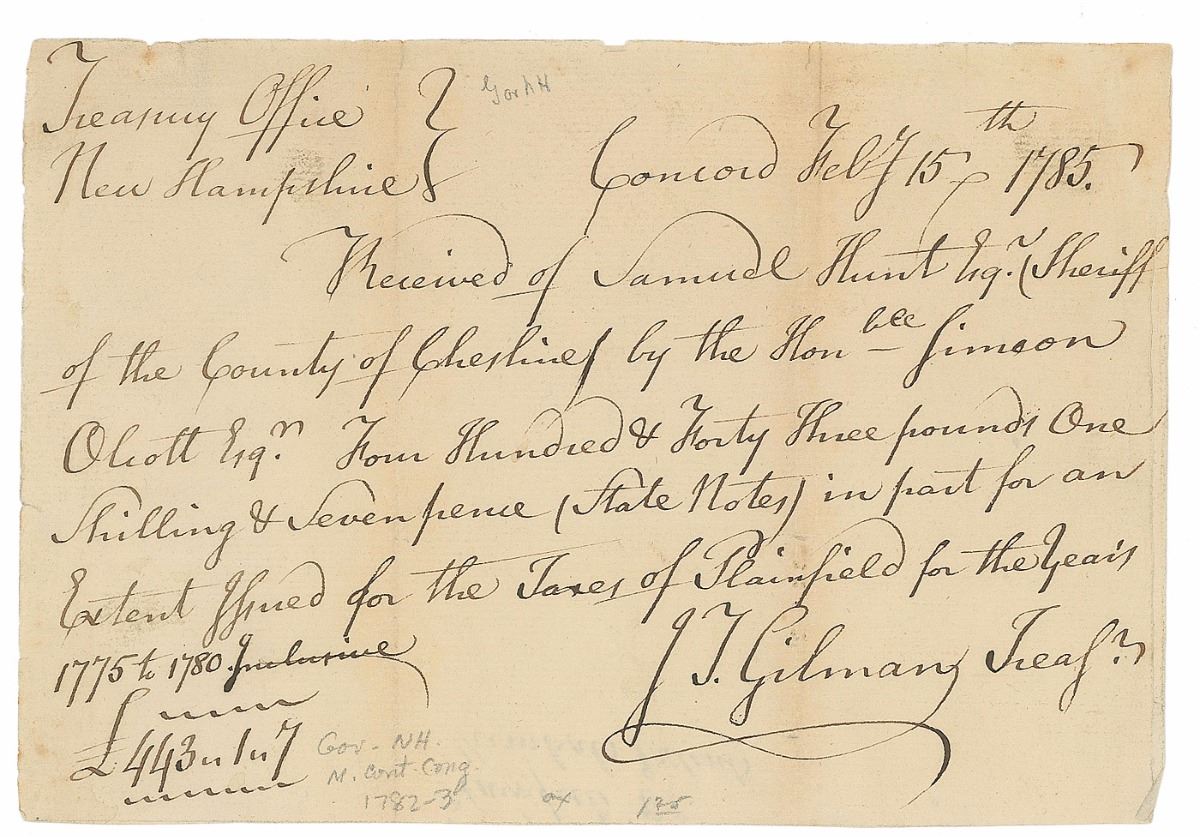 Treasury Office }
New Hampshire } Concord Feby 15th 1785.
Received of Samuel Hunt Esqr. (Sheriff
of the County of Cheshire) by the Honble Simeon
Olcott Esqr. Four Hundred & Forty Three pounds One
Shilling & Seven pence (State Notes) in part for an
Extent Issued for the Taxes of Plainfield for the Years
1775 to 1780 Inclusive
J T. Gilman Treasr.
£443 〃 1 〃 7
Gov NH
Gov. NH.
M. Cont. Cong.
1782-3